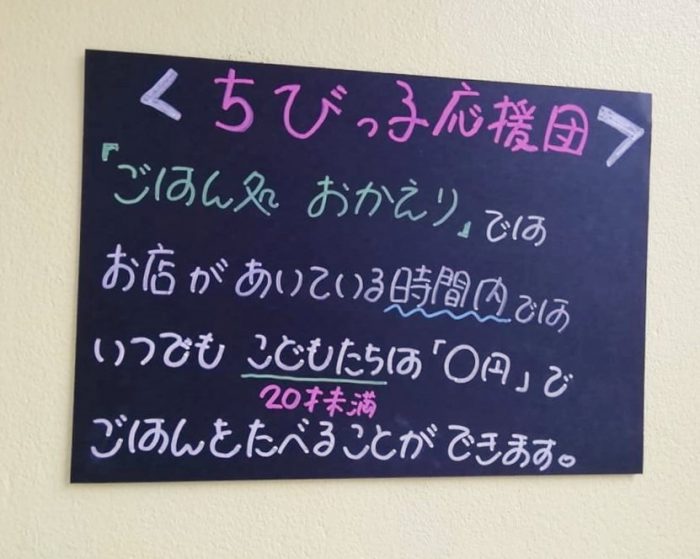 <ちびっ子応援団>
『ごはん処 おかえり』では
お店があいている時間内では
いつでも こどもたちは「〇円」で
20才未満
ごはんをたべることができます。